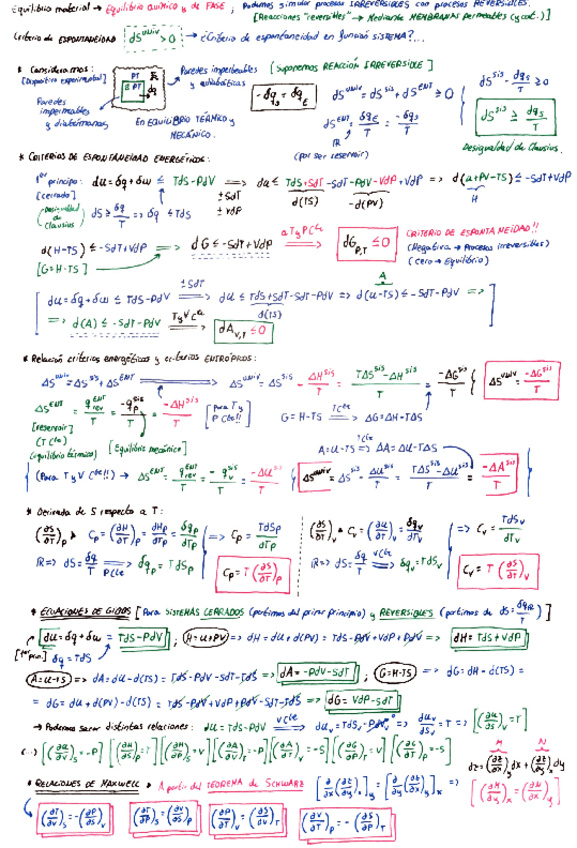 Equilibrio material → Equilibrio químico y de FASE ; Podemos simular procesos IRREVERSIBLES con procesos REVERSIBLES.
[Reacciones "reversibles" → Mediante MEMBRANAS permeables (y cat.)]
Criterio de ESPONTANEIDAD dS^univ > 0 → ¿Criterio de espontaneidad en función SISTEMA?...
* Consideramos: [Suponemos REACCIÓN IRREVERSIBLE]
[Dispositivo experimental]
Paredes impermeables y adiabáticas
Paredes impermeables y diatérmanas
PT
dq
EN EQUILIBRIO TÉRMICO y MECÁNICO.
-δq_S = δq_E
dS^univ = dS^sis + dS^ENT ≥ 0
dS^ENT = δq_E/T = -δq_S/T
(por ser reservoir)
dS^sis - δq_S/T ≥ 0
dS^sis ≥ δq_S/T
Desigualdad de Clausius.
* CRITERIOS DE ESPONTANEIDAD ENERGÉTICOS:
1er principio: du = δq + δw ≤ TdS - PdV ⟹ du ≤ TdS + SdT - SdT - PdV - VdP + VdP ⟹ d(u+PV-TS) ≤ -SdT + VdP
[cerrado] ± SdT ± VdP d(TS) -d(PV) H
(Desigualdad de Clausius) dS ≥ δq/T ⟹ δq ≤ TdS
d(H-TS) ≤ -SdT + VdP ⟹ dG ≤ -SdT + VdP ⟹ dG_P,T ≤ 0 CRITERIO DE ESPONTANEIDAD!!
[G = H-TS] a T y P Cte
(Negativa → Procesos irreversibles)
(Cero → Equilibrio)
[ du = δq + δw ≤ TdS - PdV ⟹ (± SdT) du ≤ TdS + SdT - SdT - PdV ⟹ d(u-TS) ≤ -SdT - PdV ⟹
d(TS) A
⟹ d(A) ≤ -SdT - PdV ⟹ (T y V Cte) dA_V,T ≤ 0 ]
* Relación criterios energéticos y criterios ENTRÓPICOS:
ΔS^univ = ΔS^sis + ΔS^ENT ⟹ ΔS^univ = ΔS^sis - ΔH^sis/T = (TΔS^sis - ΔH^sis)/T = -ΔG^sis/T { ΔS^univ = -ΔG^sis/T
ΔS^ENT = q_rev^ENT/T = -q_P^sis/T = -ΔH^sis/T [Para T y P Cte!!] G = H-TS ⟹ (T Cte) ΔG = ΔH - TΔS
[reservoir]
(T Cte)
(Equilibrio térmico) [Equilibrio mecánico]
A = U-TS ⟹ (T Cte) ΔA = ΔU - TΔS
{ (Para T y V Cte!!) → ΔS^ENT = q_rev^ENT/T = -q_V^sis/T = -ΔU^sis/T { ΔS^univ = ΔS^sis - ΔU^sis/T = (TΔS^sis - ΔU^sis)/T = -ΔA^sis/T }
* Derivada de S respecto a T:
(∂S/∂T)_P * C_P = (∂H/∂T)_P = dH_P/dT_P = δq_P/dT_P ⟹ C_P = TdS_P/dT_P
R ⟹ dS = δq/T ⟹ (P Cte) δq_P = TdS_P C_P = T(∂S/∂T)_P
(∂S/∂T)_V * C_V = (∂U/∂T)_V = δq_V/dT_V ⟹ C_V = TdS_V/dT_V
R ⟹ dS = δq/T ⟹ (V Cte) δq_V = TdS_V C_V = T(∂S/∂T)_V
* ECUACIONES DE GIBBS [Para SISTEMAS CERRADOS (partimos del primer principio) y REVERSIBLES (partimos de dS = δq_R/T)]
du = δq + δw = TdS - PdV ; H = u+PV ⟹ dH = du + d(PV) = TdS - PdV + VdP + PdV ⟹ dH = TdS + VdP
[1er prin.] δq = TdS
A = u-TS ⟹ dA = du - d(TS) = TdS - PdV - SdT - TdS ⟹ dA = -PdV - SdT ; G = H-TS ⟹ dG = dH - d(TS) =
= dG = du + d(PV) - d(TS) = TdS - PdV + VdP + PdV - SdT - TdS ⟹ dG = VdP - SdT
→ Podemos sacar distintas relaciones: du = TdS - PdV ⟹ (V Cte) du_V = TdS_V - PdV ⟹ du_V/dS_V = T ⟹ [(∂u/∂S)_V = T]
(...) [(∂u/∂V)_S = -P] [(∂H/∂S)_P = T] [(∂H/∂P)_S = V] [(∂A/∂V)_T = -P] [(∂A/∂T)_V = -S] [(∂G/∂P)_T = V] [(∂G/∂T)_P = -S]
M N
dz = (∂z/∂x)_y dx + (∂z/∂y)_x dy
* RELACIONES DE MAXWELL * A partir del TEOREMA de SCHWARZ [∂/∂x (∂z/∂y)_x]_y = [∂/∂y (∂z/∂x)_y]_x ⟹ [(∂M/∂y)_x = (∂N/∂x)_y]
(∂T/∂V)_S = -(∂P/∂S)_V (∂T/∂P)_S = (∂V/∂S)_P (∂P/∂T)_V = (∂S/∂V)_T (∂V/∂T)_P = -(∂S/∂P)_T